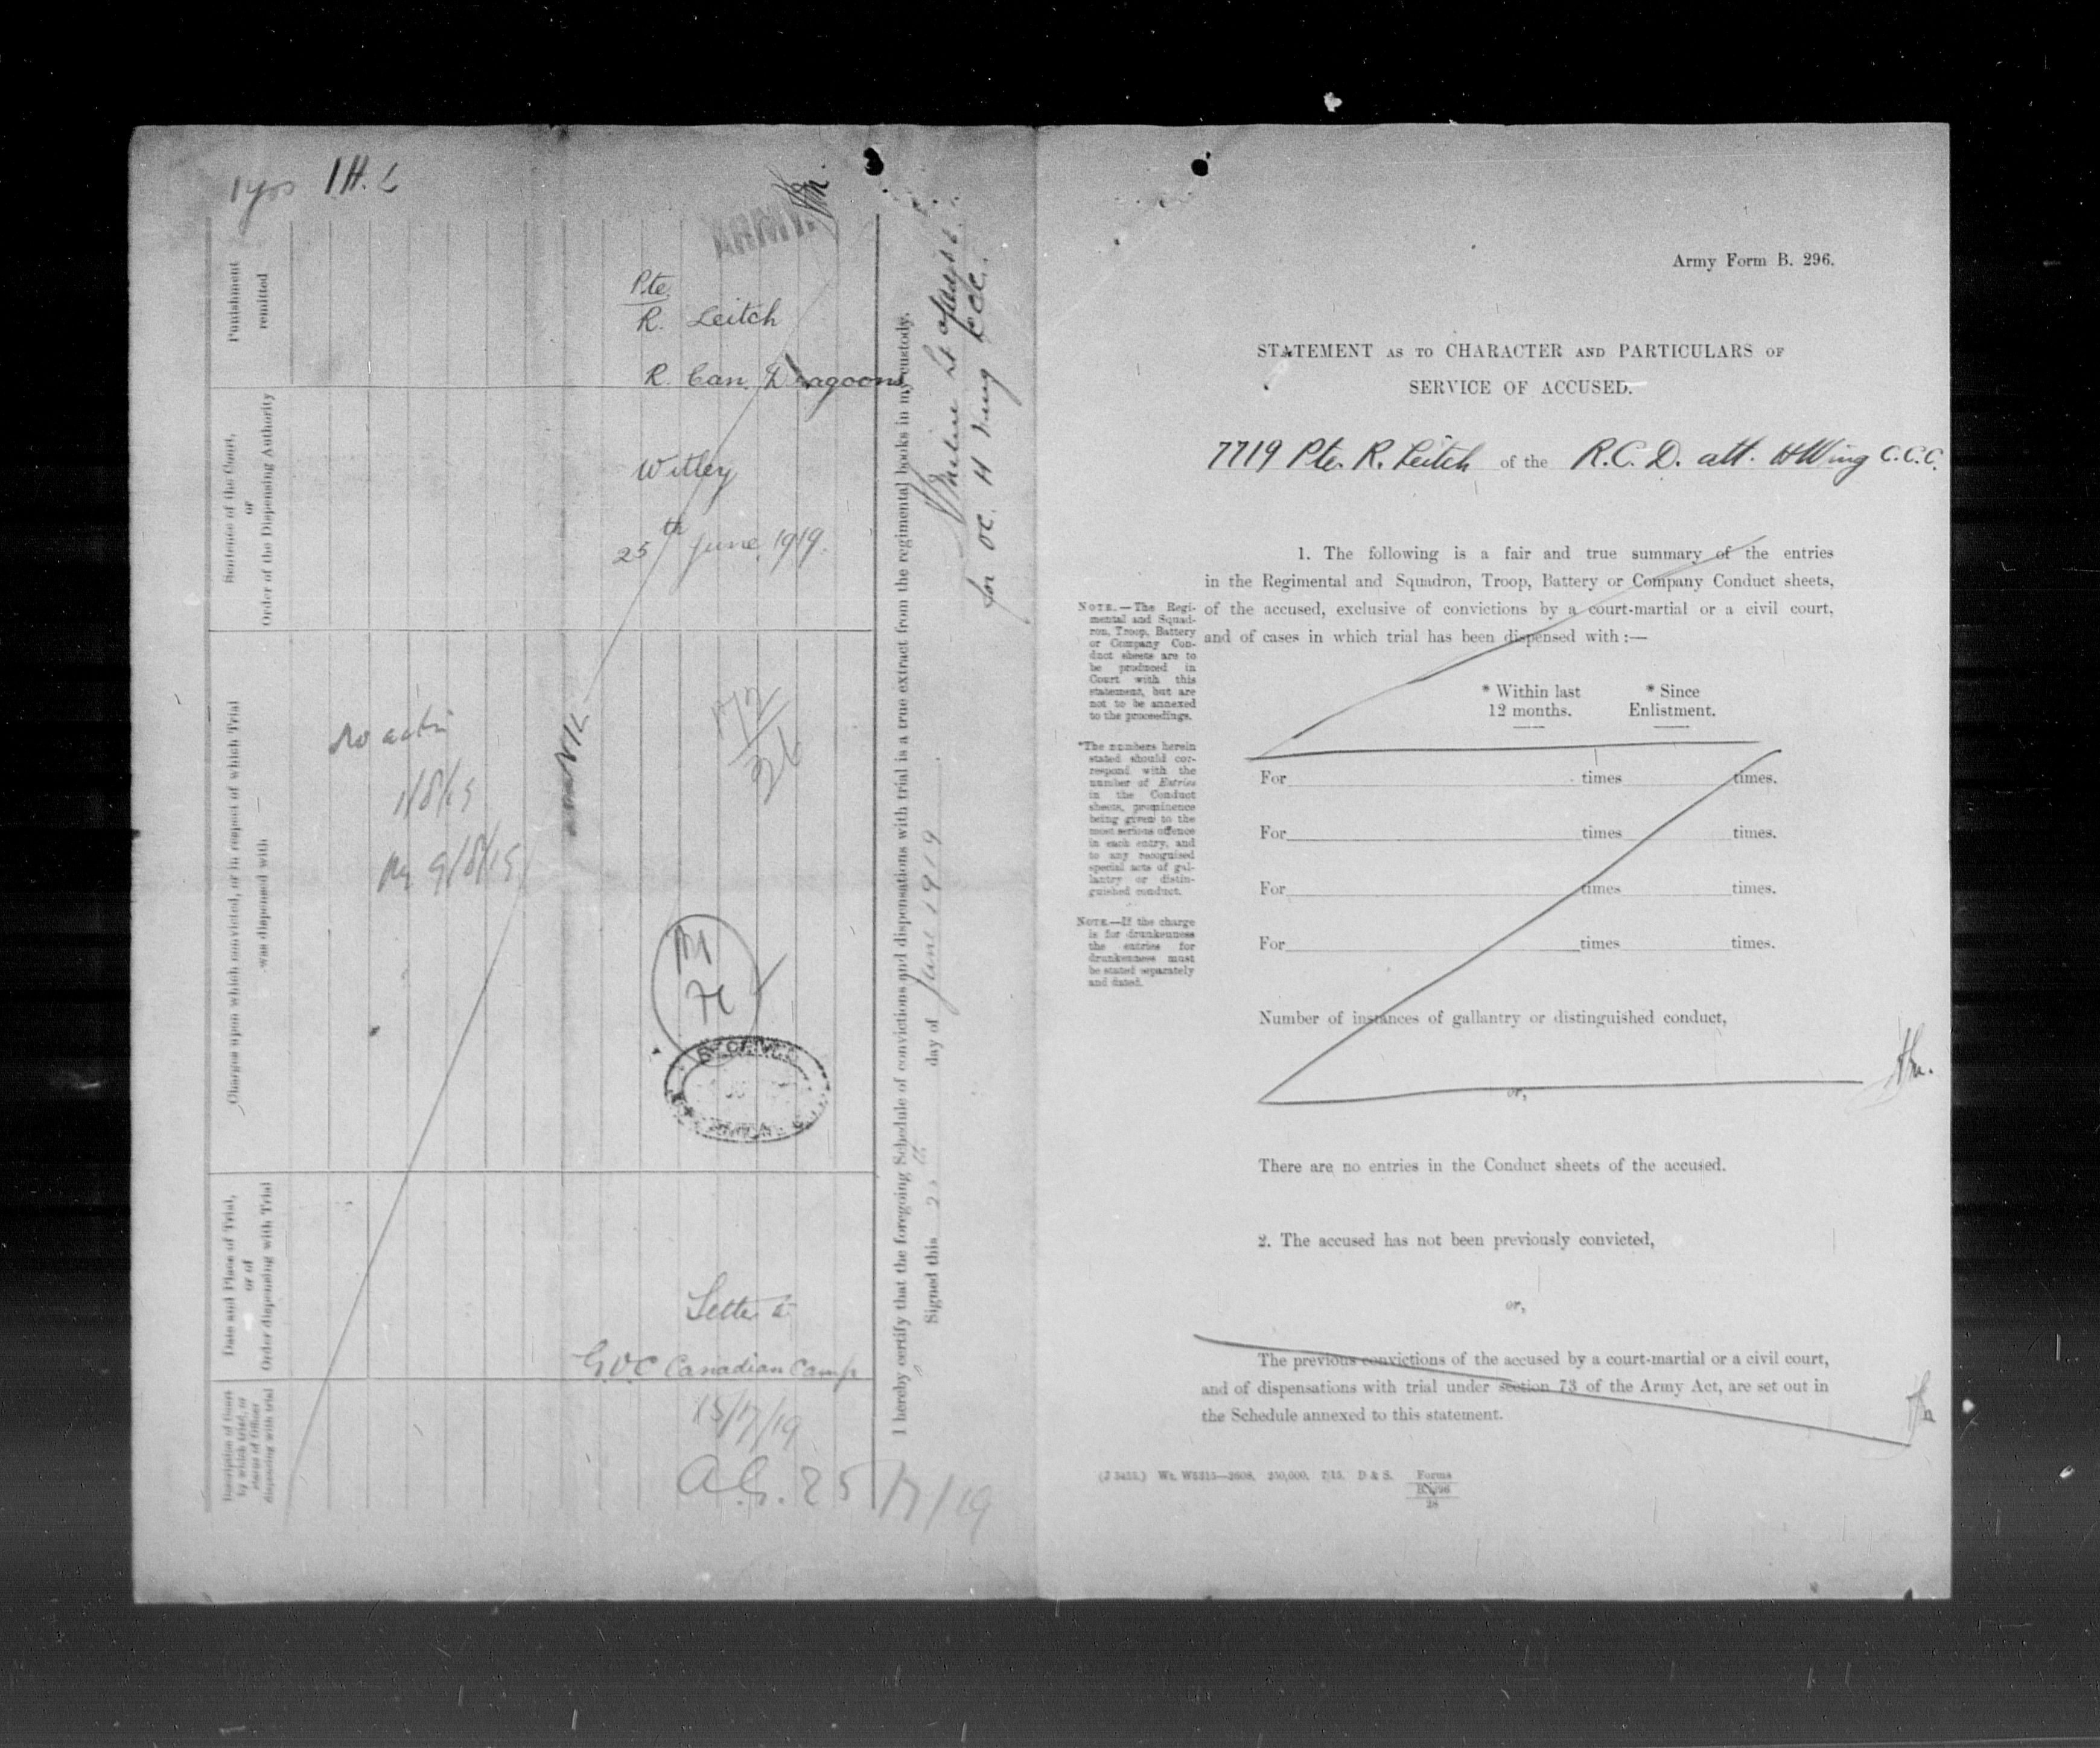 1 H. L
ARMY.
Pte
R. Leitch
R. Can. Dragoons
Witley
25th June 1919.
No actn
1/8/19
9/8/19
Letter to
G.O.C Canadian Camp
15/7/19
A.G. 25/7/19
Punishment
remitted
Sentence of the Court,
or
Order of the Dispensing Authority
Charges upon which convicted, or in respect of which Trial
was dispensed with
Date and Place of Trial,
or of
Order dispensing with Trial
Description of Court
by which tried, or
status of Officer
dispensing with trial
I hereby certify that the foregoing Schedule of convictions and dispensations with trial is a true extract from the regimental books in my custody.
Signed this 25th day of June 1919
for O.C. H Wing C.C.C.
Army Form B. 296.
STATEMENT AS TO CHARACTER AND PARTICULARS OF
SERVICE OF ACCUSED.
7719 Pte. R. Leitch of the R.C.D. att. H Wing C.C.C.
1. The following is a fair and true summary of the entries
in the Regimental and Squadron, Troop, Battery or Company Conduct sheets,
of the accused, exclusive of convictions by a court-martial or a civil court,
and of cases in which trial has been dispensed with :—
NOTE.—The Regi-
mental and Squad-
ron, Troop, Battery
or Company Con-
duct sheets are to
be produced in
Court with this
statement, but are
not to be annexed
to the proceedings.
*The numbers herein
stated should cor-
respond with the
number of Entries
in the Conduct
sheets, prominence
being given to the
most serious offence
in each entry, and
to any recognised
special acts of gal-
lantry or distin-
guished conduct.
NOTE.—If the charge
is for drunkenness
the entries for
drunkenness must
be stated separately
and dated.
* Within last * Since
12 months. Enlistment.
For times times.
For times times.
For times times.
For times times.
Number of instances of gallantry or distinguished conduct,
or,
There are no entries in the Conduct sheets of the accused.
2. The accused has not been previously convicted,
or,
The previous convictions of the accused by a court-martial or a civil court,
and of dispensations with trial under section 73 of the Army Act, are set out in
the Schedule annexed to this statement.
250,000. 7/15. D & S. Forms
28